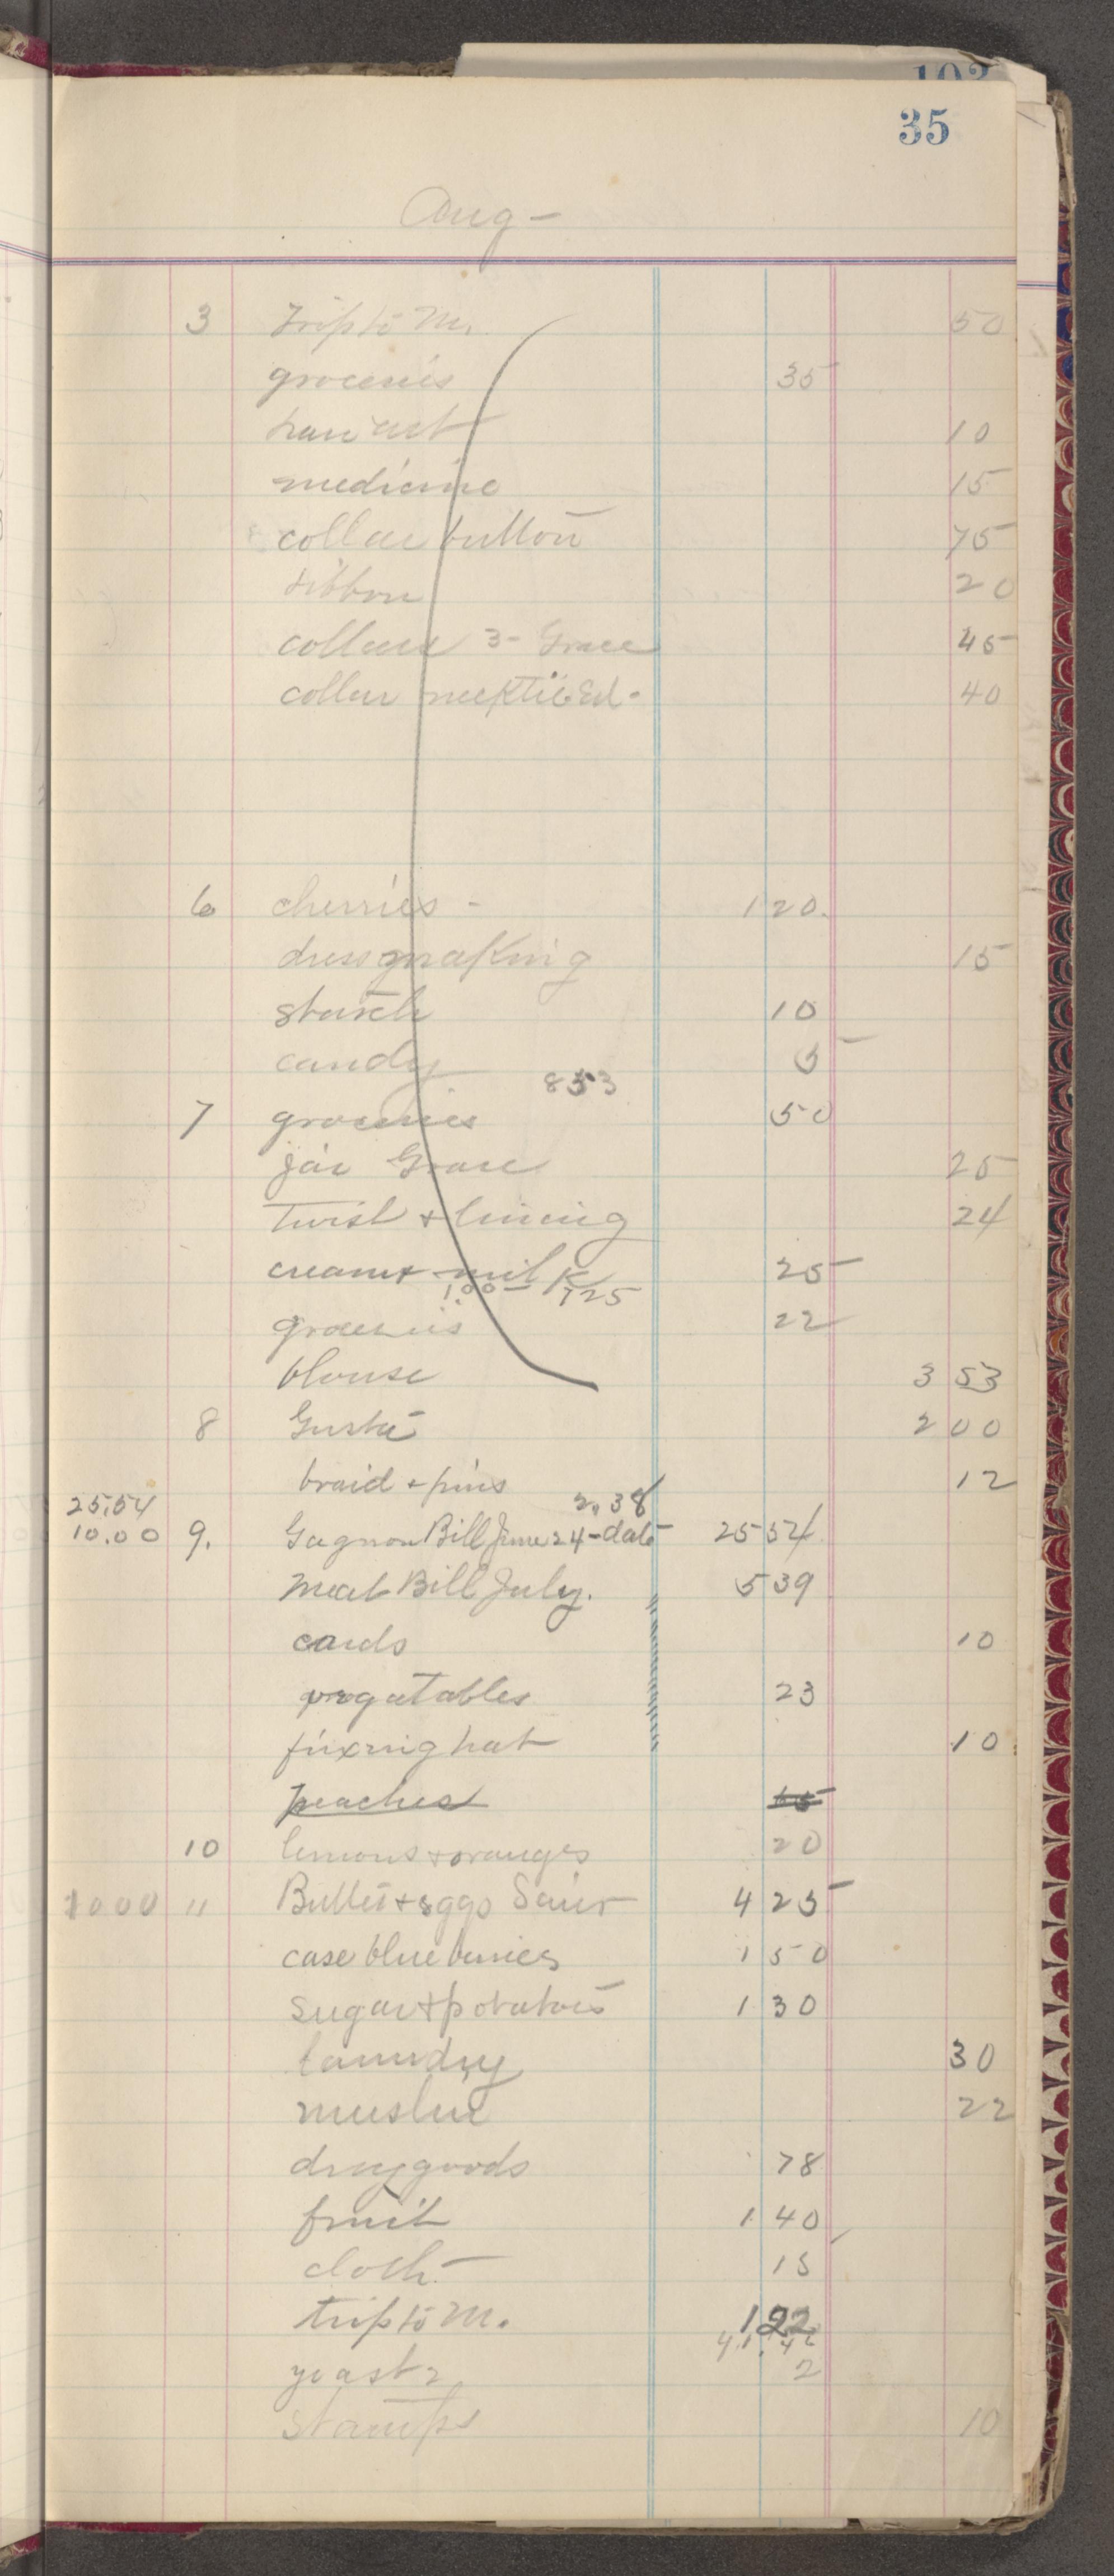 35
Aug -
3 Trip to M. 50
groceries 35
hair cut 10
medicine 15
collar button 75
ribbon 20
collars 3- Grace 45
collar necktie Ed- 40
6 cherries - 1 20.
dressmaking 15
starch 10
candy 5
853
7 groceries 50
jar Grace 25
Twist + lining 24
cream + milk 25
1.00 725
groceries 22
blouse 3 53
8 Gusta 2 00
braid + pins 12
25.54 2.38
10.00 9. Gagnon Bill June 24-date 25 54
Meat Bill July. 5 39
cards 10
vegatables 23
fixing hat 10
peaches
10 lemons + oranges 20
1000 11 Butter + eggs 4 25
case blue berries 1 50
sugar + potatoes 1 30
laundry 30
muslin 22
dry goods 78
fruit 1 40
cloth 15
trip to M. 1 22
41.42
yeast 2 2
stamps 10